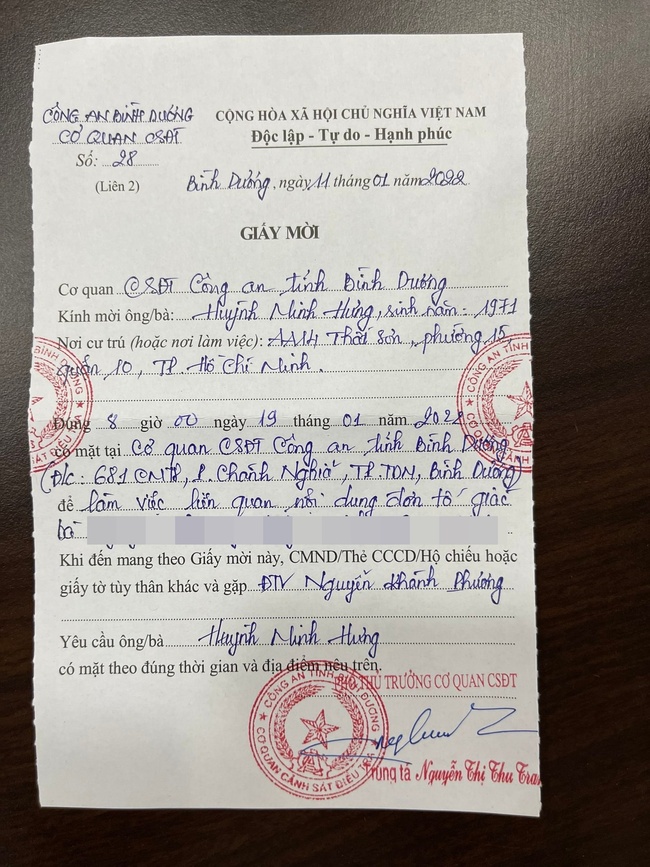 CÔNG AN BÌNH DƯƠNG
CƠ QUAN CSĐT
Số: 28
(Liên 2)
CỘNG HÒA XÃ HỘI CHỦ NGHĨA VIỆT NAM
Độc lập - Tự do - Hạnh phúc
Bình Dương, ngày 11 tháng 01 năm 2022
GIẤY MỜI
Cơ quan CSĐT Công an tỉnh Bình Dương
Kính mời ông/bà: Huỳnh Minh Hưng, sinh năm: 1971
Nơi cư trú (hoặc nơi làm việc): AA14 Thất Sơn, phường 15,
quận 10, TP Hồ Chí Minh.
Đúng 8 giờ 00 ngày 19 tháng 01 năm 2022
có mặt tại Cơ quan CSĐT Công an tỉnh Bình Dương
(Đ/c: 681 CMT8, P. Chánh Nghĩa, TP. TDM, Bình Dương)
để làm việc liên quan nội dung đơn tố giác
bà
Khi đến mang theo Giấy mời này, CMND/Thẻ CCCD/Hộ chiếu hoặc
giấy tờ tùy thân khác và gặp ĐTV Nguyễn Khánh Phương
Yêu cầu ông/bà Huỳnh Minh Hưng
có mặt theo đúng thời gian và địa điểm nêu trên.
PHÓ THỦ TRƯỞNG CƠ QUAN CSĐT
CÔNG AN TỈNH BÌNH DƯƠNG
CƠ QUAN CẢNH SÁT ĐIỀU TRA
Trung tá Nguyễn Thị Thu Tran